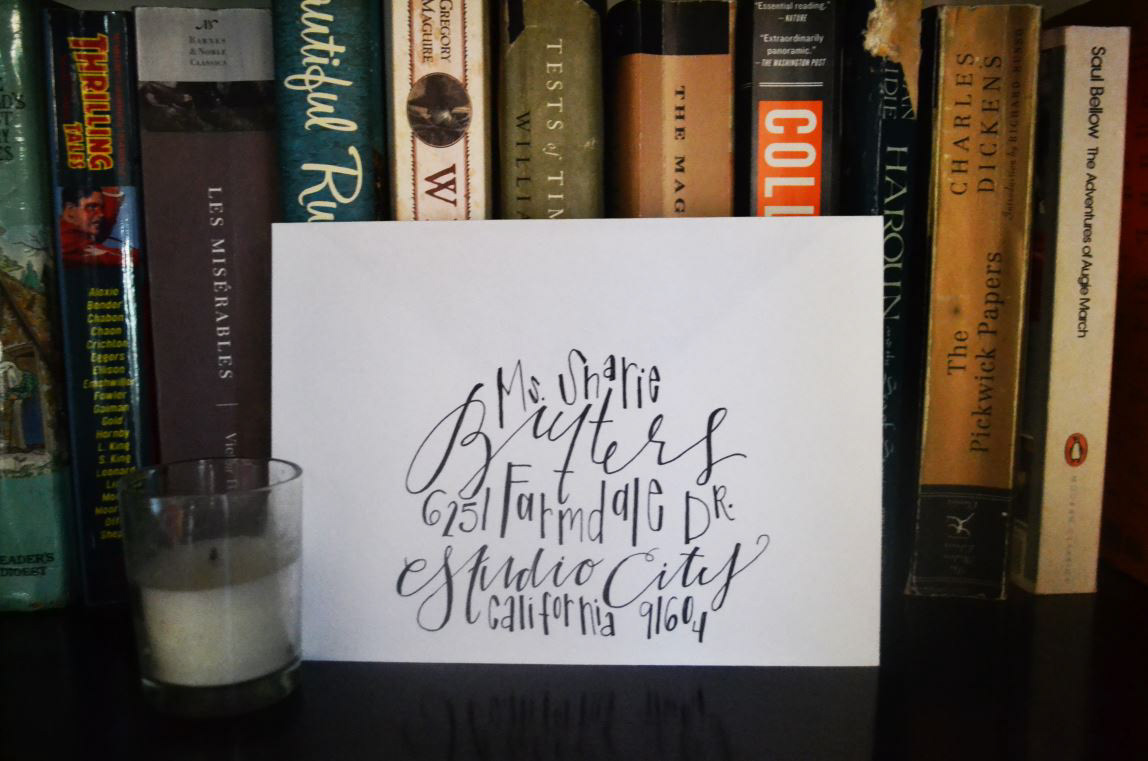 THRILLING
TALES
Alexie
Bender
Chabon
Chaon
Crichton
Eggers
Ellison
Emshwiller
Fowler
Gaiman
Gold
Hornby
L. King
S. King
Leonard
READER'S
DIGEST
BARNES
& NOBLE
CLASSICS
LES MISÉRABLES
utiful Ru
GREGORY
MAGUIRE
W
TESTS of TIM
WILLIA
THE MAG
"Essential reading."
— NATURE
"Extraordinarily
panoramic."
— THE WASHINGTON POST
COLL
HAROUN
CHARLES
DICKENS
Introduction by RICHARD RUSSO
The
Pickwick Papers
Saul Bellow The Adventures of Augie March
Ms. Sharie
Buyters
6251 Farmdale DR.
Studio City
California 91604